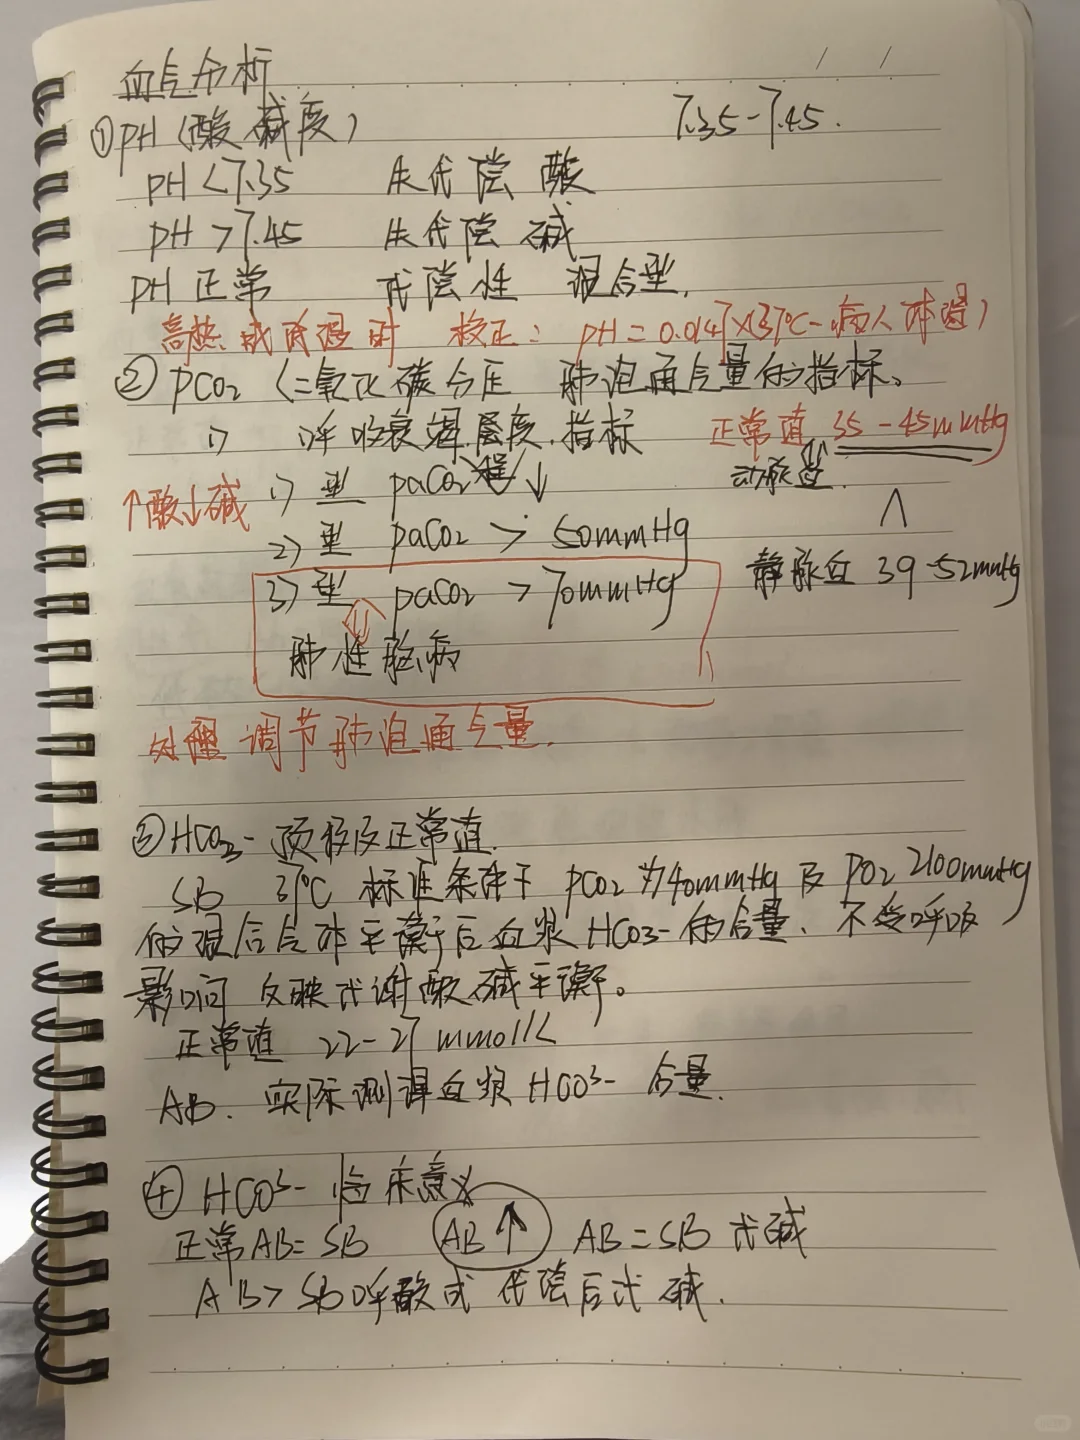 血气分析
①PH（酸碱度） 7.35-7.45.
PH<7.35 失代偿 酸
PH>7.45 失代偿 碱
PH正常 代偿性 混合型.
高热或降温时 校正: PH=0.0147×(37℃-病人体温)
②PCO2（二氧化碳分压 肺泡通气量的指标。
1) 呼吸衰竭.程度.指标 正常值 35-45mmHg
动脉血
↑酸↓碱 1)型 paCO2 ↓
∧
2)型 paCO2 > 50mmHg
静脉血 39-52mmHg
3)型 paCO2 > 70mmHg
肺性脑病
处理 调节肺泡通气量.
③HCO3- 项移及正常值.
SB 37℃ 标准条件下 PCO2为40mmHg及PO2 2100mmHg
的混合气体平衡后血浆HCO3-的含量、不受呼吸
影响 反映代谢酸碱平衡。
正常值 22-27mmol/L
AB. 实际测得血浆HCO3- 含量.
④HCO3- 临床意义
正常AB=SB AB↑ AB=SB 代碱
AB>SB呼酸或代偿后代碱.